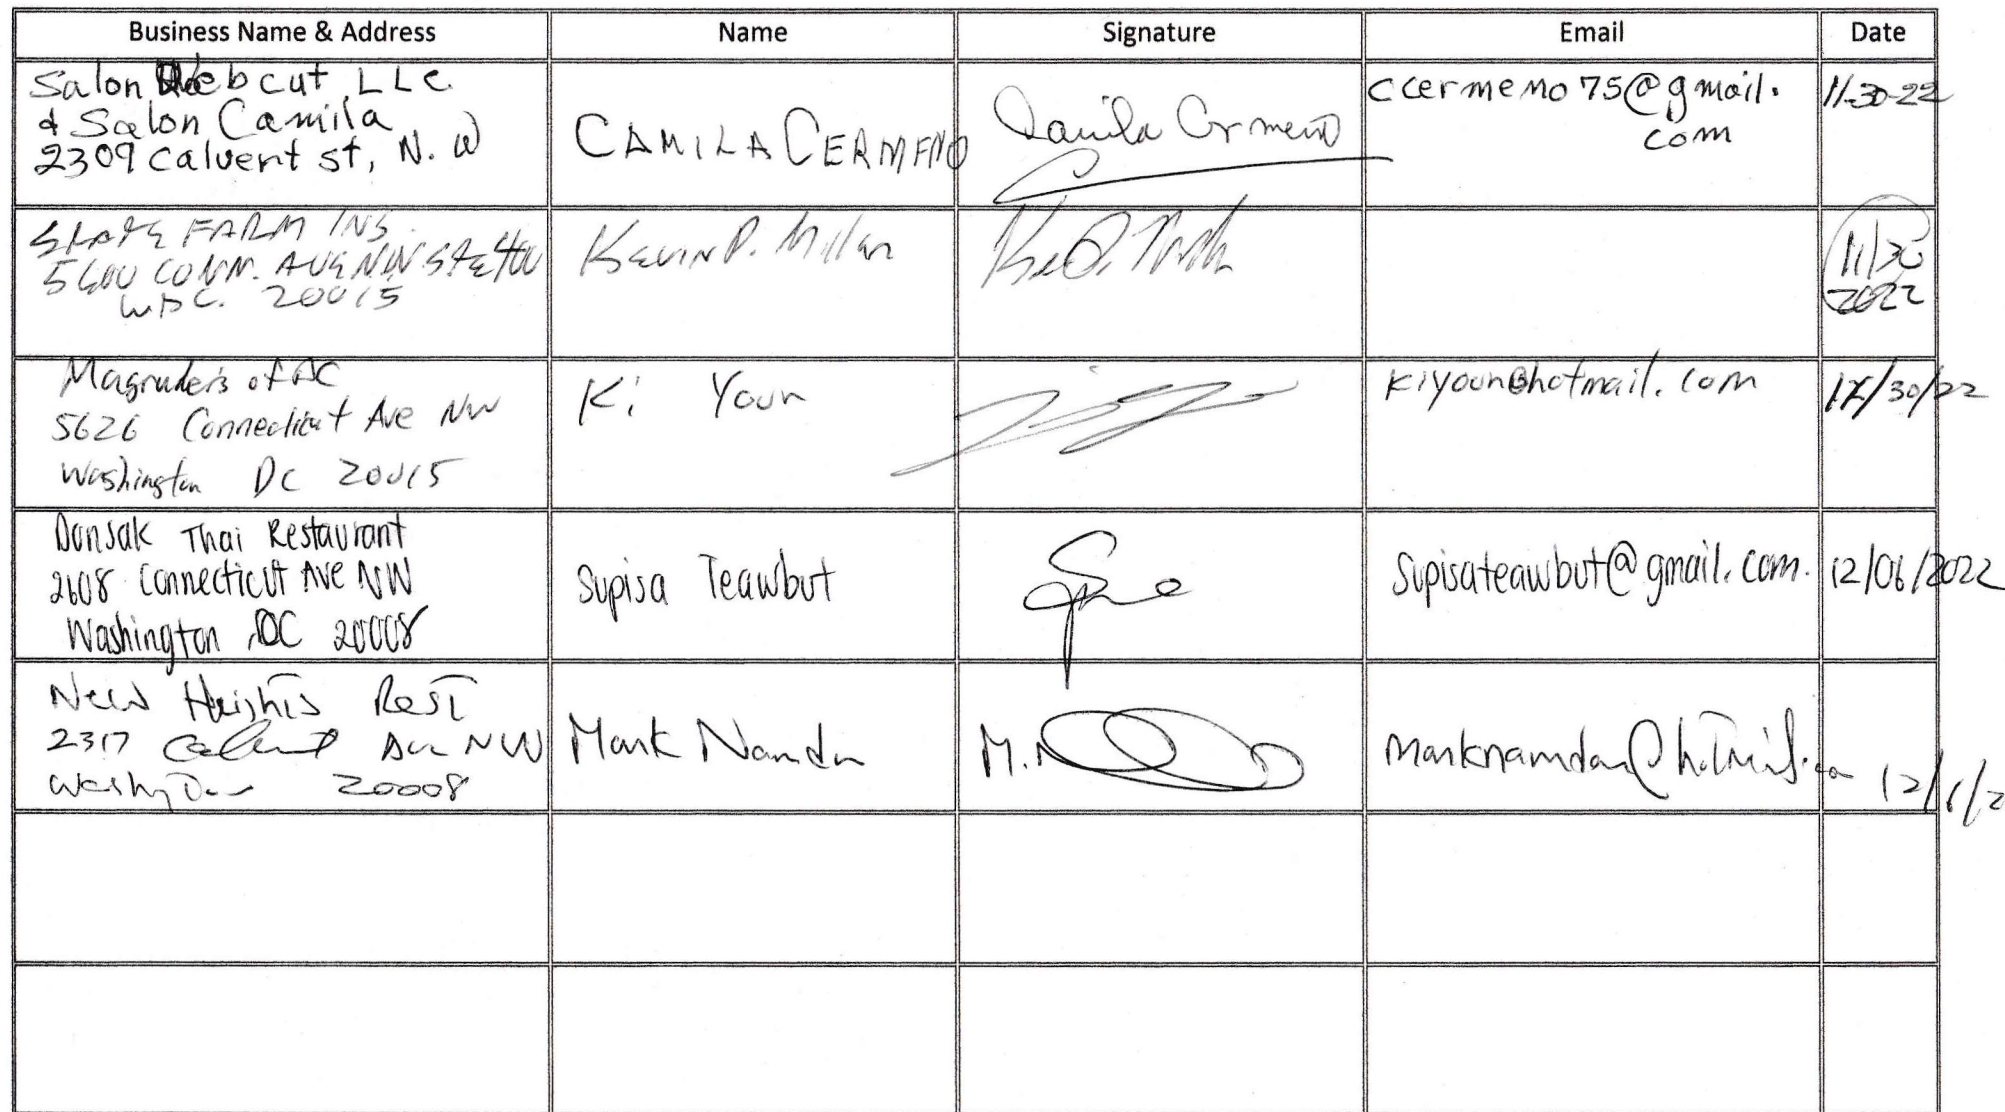 Business Name & Address Name Signature Email Date
Salon bcut LLC.
& Salon Camila
2309 Calvert st, N. W
CAMILA CERMENO
Camila Cermeno
ccermeno75@gmail.
com
11-30-22
STATE FARM INS.
5600 CONN. AVE NW STE 400
WDC. 20015
Kevin P.
11/30
2022
Magruder's of DC
5626 Connecticut Ave NW
Washington DC 20015
Ki Youn
kiyoun@hotmail.com
/30/22
Donsak Thai Restaurant
2608 Connecticut Ave NW
Washington, DC 20008
Supisa Teawbut
Supisateawbut@gmail.com.
12/06/2022
New Heights Rest
2317 Calvert Ave NW
Washington 20008
Mark Namdar
M.
marknamdar@hotmail.com
12/6/2